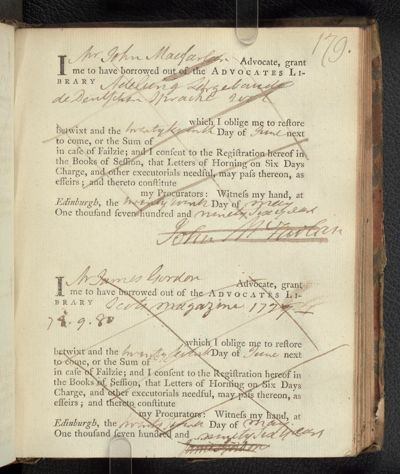 179.
I Mr John Macfarlan Advocate, grant
me to have borrowed out of the ADVOCATES LI-
BRARY Adelung
de Deutschen Sprache
which I oblige me to reſtore
betwixt and the twenty ninth Day of June next
to come, or the Sum of
in caſe of Failzie; and I conſent to the Regiſtration hereof in
the Books of Seſſion, that Letters of Horning on Six Days
Charge, and other executorials needful, may paſs thereon, as
effeirs; and thereto conſtitute
my Procurators: Witneſs my hand, at
Edinburgh, the twenty ninth Day of May
One thouſand ſeven hundred and ninety Six years
John McFarlan
I Mr James Gordon Advocate, grant
me to have borrowed out of the ADVOCATES LI-
BRARY Scots Magazine
which I oblige me to reſtore
betwixt and the twenty ninth Day of June next
to come, or the Sum of
in caſe of Failzie; and I conſent to the Regiſtration hereof in
the Books of Seſſion, that Letters of Horning on Six Days
Charge, and other executorials needful, may paſs thereon, as
effeirs; and thereto conſtitute
my Procurators: Witneſs my hand, at
Edinburgh, the twenty ninth Day of May
One thouſand ſeven hundred and ninety Six years
James Gordon